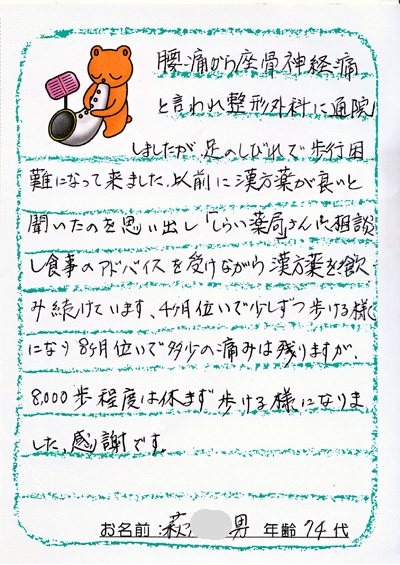 腰痛から座骨神経痛
と言われ整形外科に通院
しましたが足のしびれで歩行困
難になって来ました、以前に漢方薬が良いと
聞いたのを思い出し「しらい薬局さん」に相談
し食事のアドバイスを受けながら漢方薬を飲
み続けています、4ヶ月位いで少しずつ歩ける様
になり8ヶ月位いで多少の痛みは残りますが、
8,000歩程度は休まず歩ける様になりま
した、感謝です。
お名前:萩 男 年齢74代